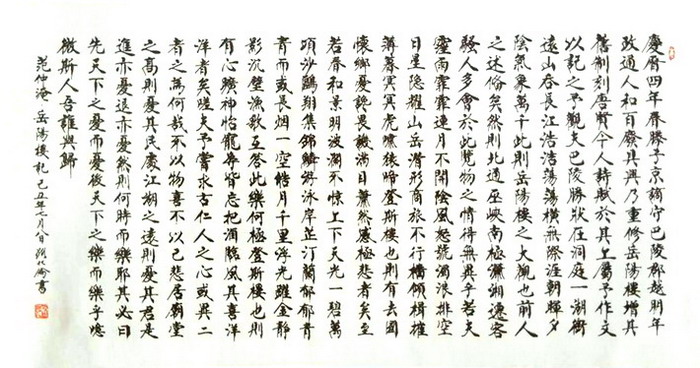 慶曆四年春滕子京謫守巴陵郡越明年
政通人和百廢具興乃重修岳陽樓增其
舊制刻唐賢今人詩賦於其上屬予作文
以記之予觀夫巴陵勝狀在洞庭一湖銜
遠山吞長江浩浩蕩蕩橫無際涯朝暉夕
陰氣象萬千此則岳陽樓之大觀也前人
之述備矣然則北通巫峽南極瀟湘遷客
騷人多會於此覽物之情得無異乎若夫
霪雨霏霏連月不開陰風怒號濁浪排空
日星隱耀山岳潛形商旅不行檣傾楫摧
薄暮冥冥虎嘯猿啼登斯樓也則有去國
懷鄉憂讒畏譏滿目蕭然感極悲者矣至
若春和景明波瀾不驚上下天光一碧萬
頃沙鷗翔集錦鱗游泳岸芷汀蘭郁郁青
青而或長烟一空皓月千里浮光躍金靜
影沉璧漁歌互答此樂何極登斯樓也則
有心曠神怡寵辱皆忘把酒臨風其喜洋
洋者矣嗟夫予嘗求古仁人之心或異二
者之為何哉不以物喜不以己悲居廟堂
之高則憂其民處江湖之遠則憂其君是
進亦憂退亦憂然則何時而樂耶其必曰
先天下之憂而憂後天下之樂而樂乎噫
微斯人吾誰與歸
范仲淹岳陽樓記己丑年七月八日書